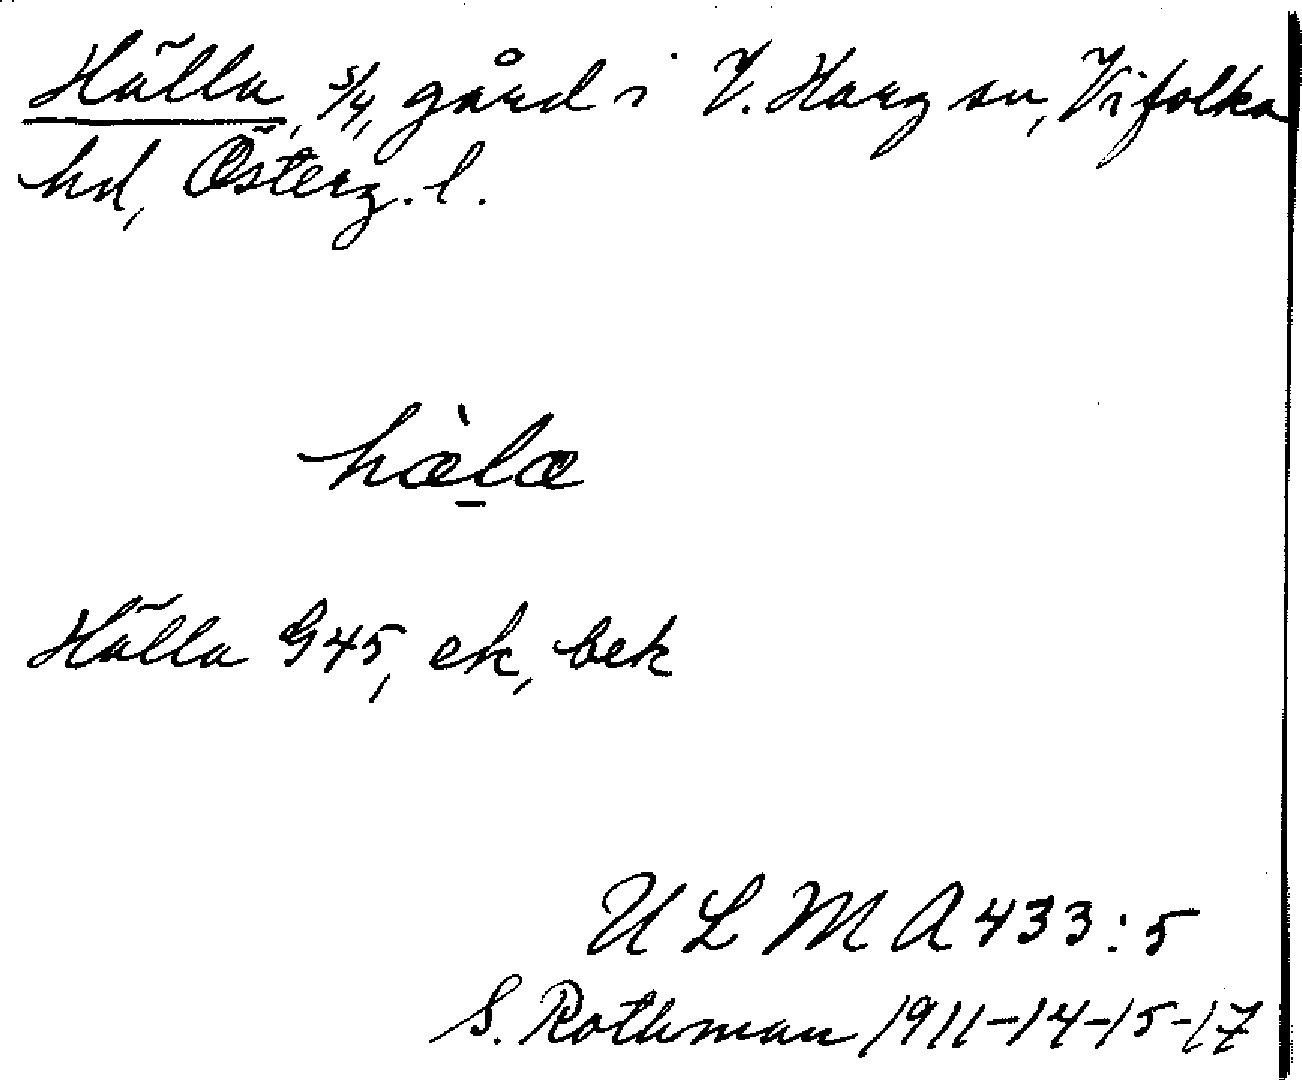 Hälla, 5/4, gård i V. Harg sn, Vifolka
hd, Österg. l.
hæ̀la
Hälla G45, ek, bek
ULMA 433:5
S. Rothman 1911-14-15-17